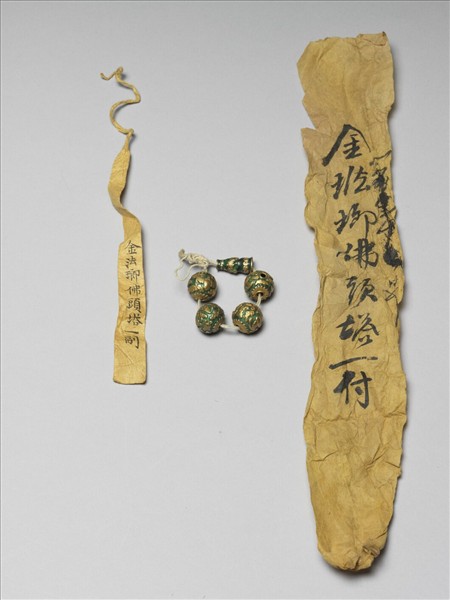 金珐瑯佛頭塔一付
金法瑯佛頭塔一副